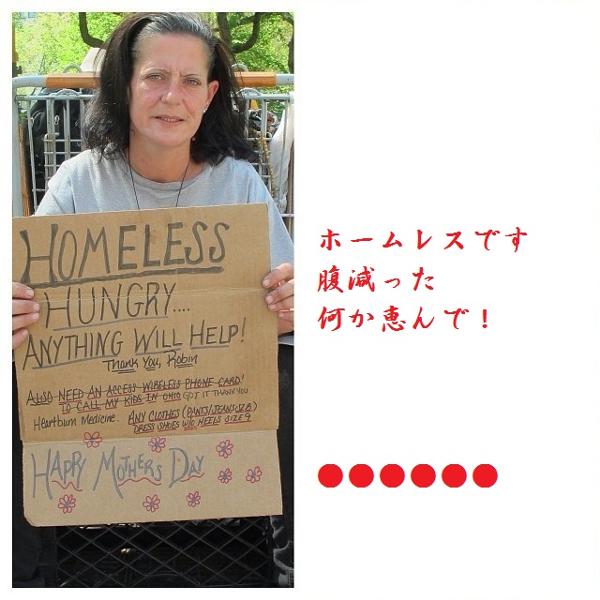 HOMELESS
HUNGRY....
ANYTHING WILL HELP!
Thank You, Robin
ALSO NEED AN ACCESS WIRELESS PHONE CARD!
TO CALL MY KIDS IN OHIO GOT IT THANK YOU
Heartburn Medicine. ANY CLOTHES (PANTS/JEANS SZ 8)
DRESS SHOES W/O HEELS SIZE 9
HAPPY MOTHERS DAY
ホームレスです
腹減った
何か恵んで！
●●●●●●